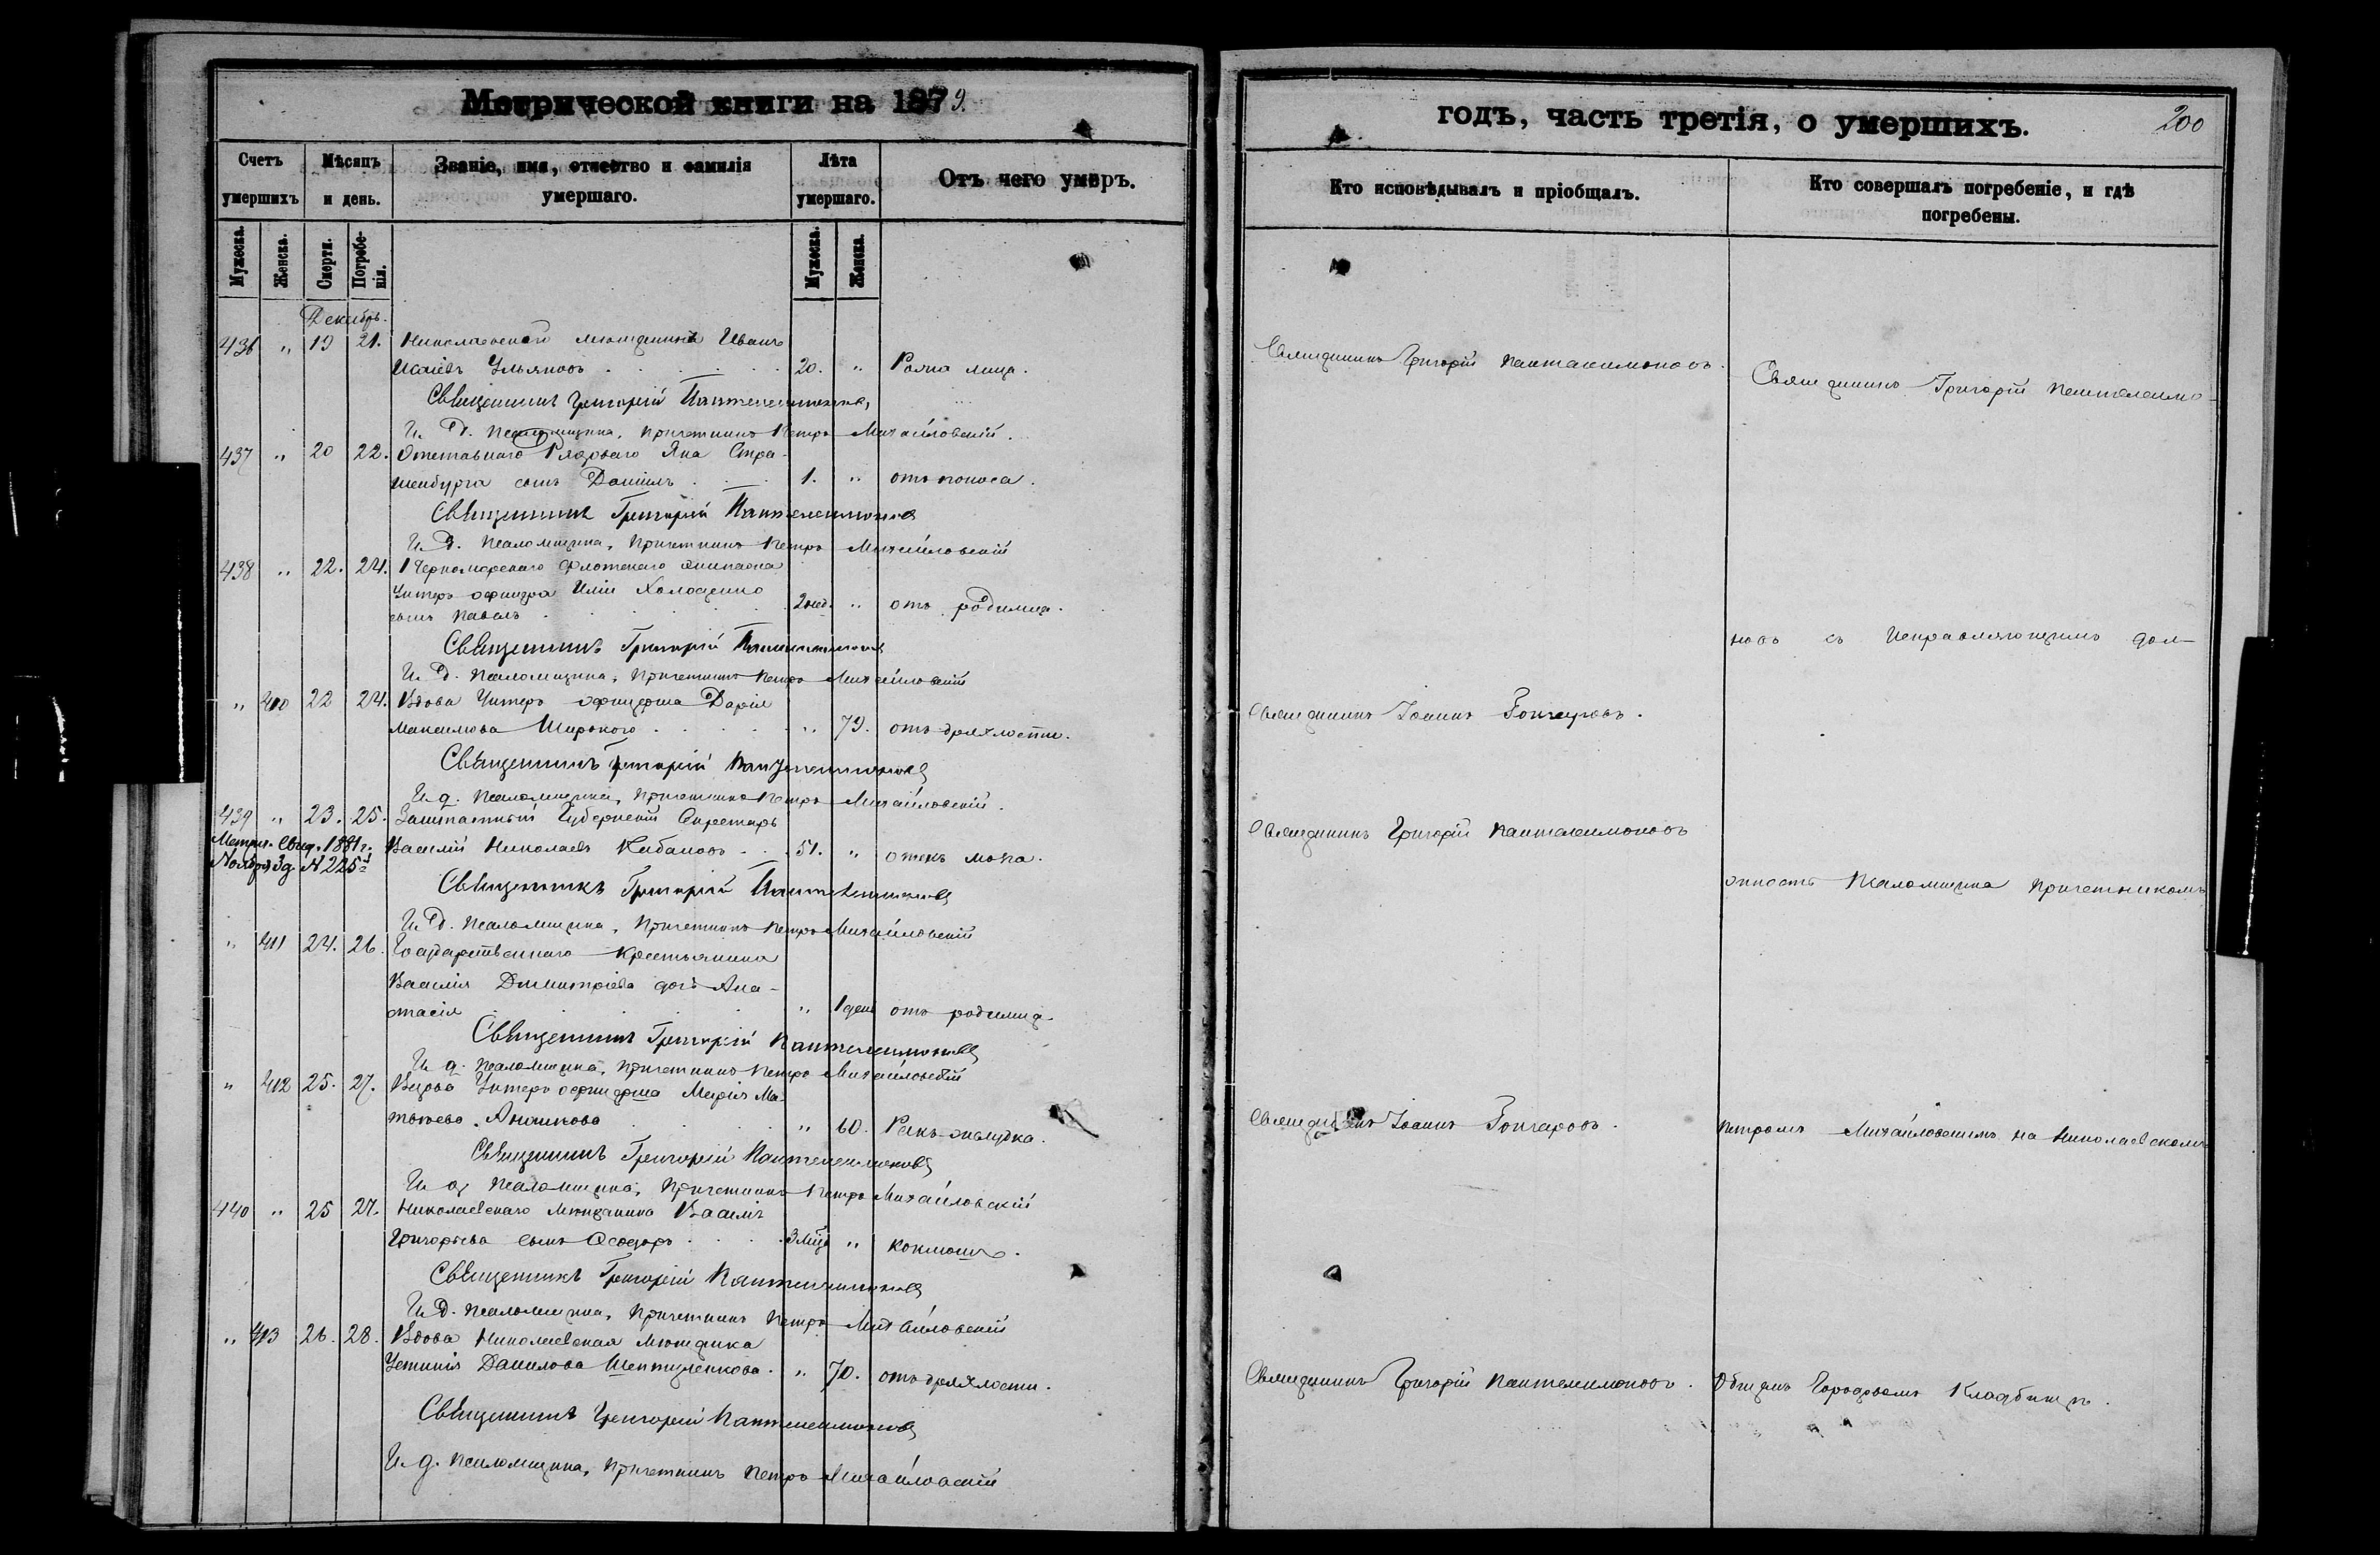 Метрической книги на 1879.
Счетъ умершихъ
Мѣсяцъ и день.
Званіе, имя, отчество и фамилія умершаго.
Лѣта умершаго.
Отъ чего умеръ.
Мужеска. Женска. Смерти. Погребенія. Мужеска. Женска.
Декабрь.
436 " 19 21. Николаевскаго мѣщанина Иванъ
Исаіевъ Ульяновъ . . . 20. " Рожа лица.
Священникъ Григорій Пантелеимоновъ
И. Д. Псаломщика, Причетникъ Петръ Михайловскій.
437 " 20 22. Отставнаго Рядоваго Яна Стра-
шенбурга сынъ Даніилъ . . . 1. " отъ поноса.
Священникъ Григорій Пантелеимоновъ
И. Д. Псаломщика, Причетникъ Петръ Михайловскій
438 " 22. 24. 1 Черноморскаго флотскаго экипажа
Унтеръ офицера Иліи Холоденко
сынъ Павелъ . . . 2 нед. " отъ родимца.
Священникъ Григорій Пантелеимоновъ
И. Д. Псаломщика, Причетникъ Петръ Михайловскій
" 410 22 24. Вдова Унтеръ офицерша Дарія
Максимова Широкого . . . " 79. отъ дряхлости.
Священникъ Григорій Пантелеимоновъ
И. д. Псаломщика, Причетникъ Петръ Михайловскій.
439 " 23. 25. Заштатный Губернскій Секретарь
Метрич. Свид. 1881 г.
Василій Николаевъ Кабановъ . . . 51. " отекъ мозга.
Ноября 3 д. № 225
Священникъ Григорій Пантелеимоновъ
И. Д. Псаломщика, Причетникъ Петръ Михайловскій
" 411 24. 26. Государственнаго Крестьянина
Василія Димитріева дочь Ана-
стасія . . . " 1 день отъ родимца.
Священникъ Григорій Пантелеимоновъ
И. д. Псаломщика, Причетникъ Петръ Михайловскій
" 412 25. 27. Вдова Унтеръ офицерша Марія Ма-
твѣева Аничкова . . . " 60. Ракъ желудка.
Священникъ Григорій Пантелеимоновъ
И. д. Псаломщика, Причетникъ Петръ Михайловскій
440 " 25 27. Николаевскаго Мѣщанина Василія
Григорьева сынъ Ѳеодоръ . . . 3 мѣс. " коклюшъ.
Священникъ Григорій Пантелеимоновъ
И. Д. Псаломщика, Причетникъ Петръ Михайловскій
" 413 26. 28. Вдова Николаевская Мѣщанка
Устинія Данилова . " 70. отъ дряхлости.
Священникъ Григорій Пантелеимоновъ
И. д. Псаломщика, Причетникъ Петръ Михайловскій
годъ, часть третія, о умершихъ.
200
Кто исповѣдывалъ и пріобщалъ.
Кто совершалъ погребеніе, и гдѣ погребены.
Священникъ Григорій Пантелеимоновъ.
Священникъ Григорій Пантелеимо-
новъ съ Исправляющимъ дол-
Священникъ Іоаннъ Гончаровъ.
Священникъ Григорій Пантелеимоновъ
жность Псаломщика Причетникомъ
Священникъ Іоаннъ Гончаровъ.
Петромъ Михайловскимъ на Николаевскомъ
Священникъ Григорій Пантелеимоновъ.
Общемъ Городскомъ Кладбищѣ.